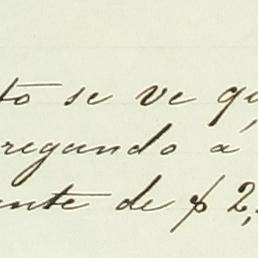 to se ve qu
regando á
ente de $ 2,